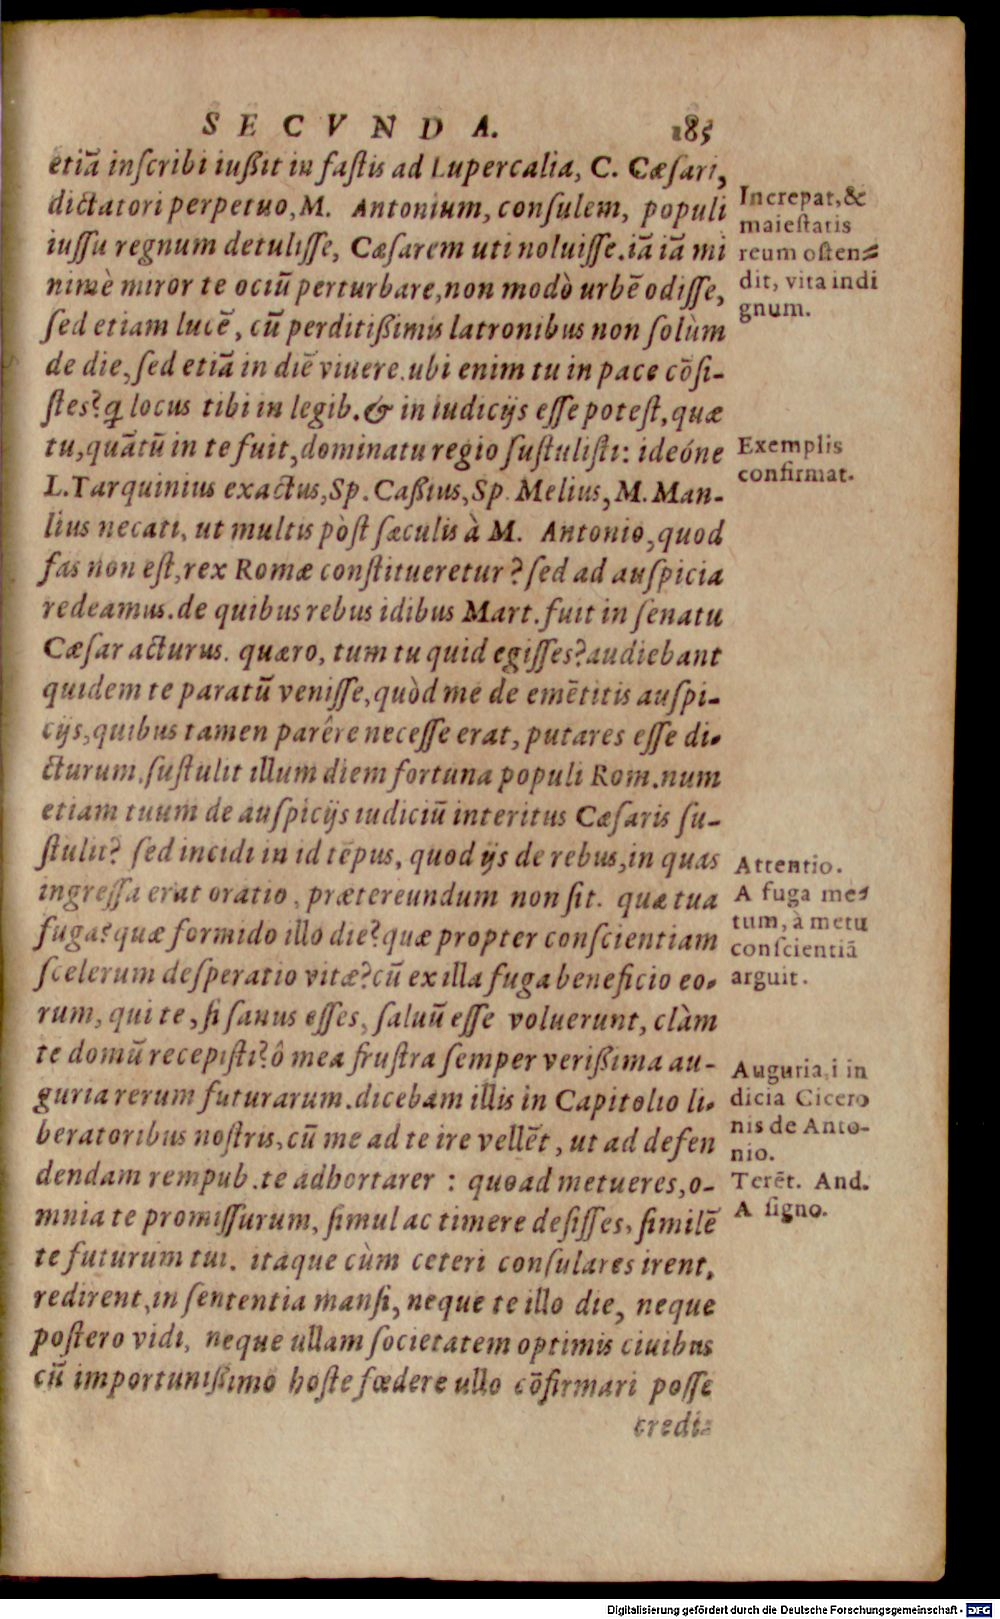 SECVNDA. 185
etiā inſcribi iußit in faſtis ad Lupercalia, C. Cæſari,
dictatori perpetuo, M. Antonium, conſulem, populi
iuſſu regnum detuliſſe, Cæſarem uti noluiſſe. iā iā mi
nimè miror te ociū perturbare, non modò urbē odiſſe,
ſed etiam lucē, cū perditißimis latronibus non ſolùm
de die, ſed etiā in diē viuere. ubi enim tu in pace cōſi-
ſtes? q̃ locus tibi in legib. & in iudicijs eſſe poteſt, quæ
tu, quātū in te fuit, dominatu regio ſuſtuliſti: ideóne
L. Tarquinius exactus, Sp. Caßius, Sp. Melius, M. Man-
lius necati, ut multis pòſt ſæculis à M. Antonio, quod
fas non eſt, rex Romæ conſtitueretur? ſed ad auſpicia
redeamus. de quibus rebus idibus Mart. fuit in ſenatu
Cæſar acturus. quæro, tum tu quid egiſſes? audiebant
quidem te paratū veniſſe, quòd me de emētitis auſpi-
cijs, quibus tamen parêre neceſſe erat, putares eſſe di-
cturum. ſuſtulit illum diem fortuna populi Rom. num
etiam tuum de auſpicijs iudiciū interitus Cæſaris ſu-
ſtulit? ſed incidi in id tēpus, quod ijs de rebus, in quas
ingreſſa erat oratio, prætereundum non ſit. quæ tua
fuga? quæ formido illo die? quæ propter conſcientiam
ſcelerum deſperatio vitæ? cū ex illa fuga beneficio eo-
rum, qui te, ſi ſanus eſſes, ſaluū eſſe voluerunt, clàm
te domū recepiſti? ô mea fruſtra ſemper verißima au-
guria rerum futurarum. dicebam illis in Capitolio li-
beratoribus noſtris, cū me ad te ire vellēt, ut ad defen
dendam rempub. te adhortarer : quoad metueres, o-
mnia te promiſſurum, ſimul ac timere deſiſſes, ſimilē
te futurum tui. itaque cùm ceteri conſulares irent,
redirent, in ſententia manſi, neque te illo die, neque
poſtero vidi, neque ullam ſocietatem optimis ciuibus
cū importunißimo hoſte fœdere ullo cōfirmari poſſe
credi-
Increpat, &
maieſtatis
reum oſten-
dit, vita indi
gnum.
Exemplis
confirmat.
Attentio.
A fuga me-
tum, à metu
conſcientiā
arguit.
Auguria, i in
dicia Cicero
nis de Anto-
nio.
Terēt. And.
A ſigno.
Digitalisierung gefördert durch die Deutsche Forschungsgemeinschaft - DFG